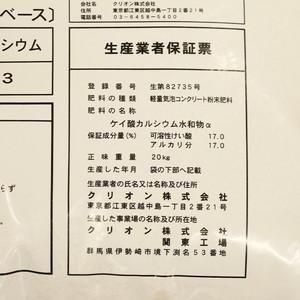 ベース〕
シウム
3
クリオン株式会社
住所 東京都江東区越中島1丁目2番21号
電話番号 03-6458-5400
生産業者保証票
登録番号 生第82735号
肥料の種類 軽量気泡コンクリート粉末肥料
肥料の名称
ケイ酸カルシウム水和物α
保証成分量(%) 可溶性けい酸 17.0
アルカリ分 17.0
正味重量 20kg
生産した年月 袋の下部へ記載
生産業者の氏名又は名称及び住所
クリオン株式会社
東京都江東区越中島1丁目2番21号
生産した事業場の名称及び所在地
クリオン株式会社
関東工場
群馬県伊勢崎市境下渕名53番地